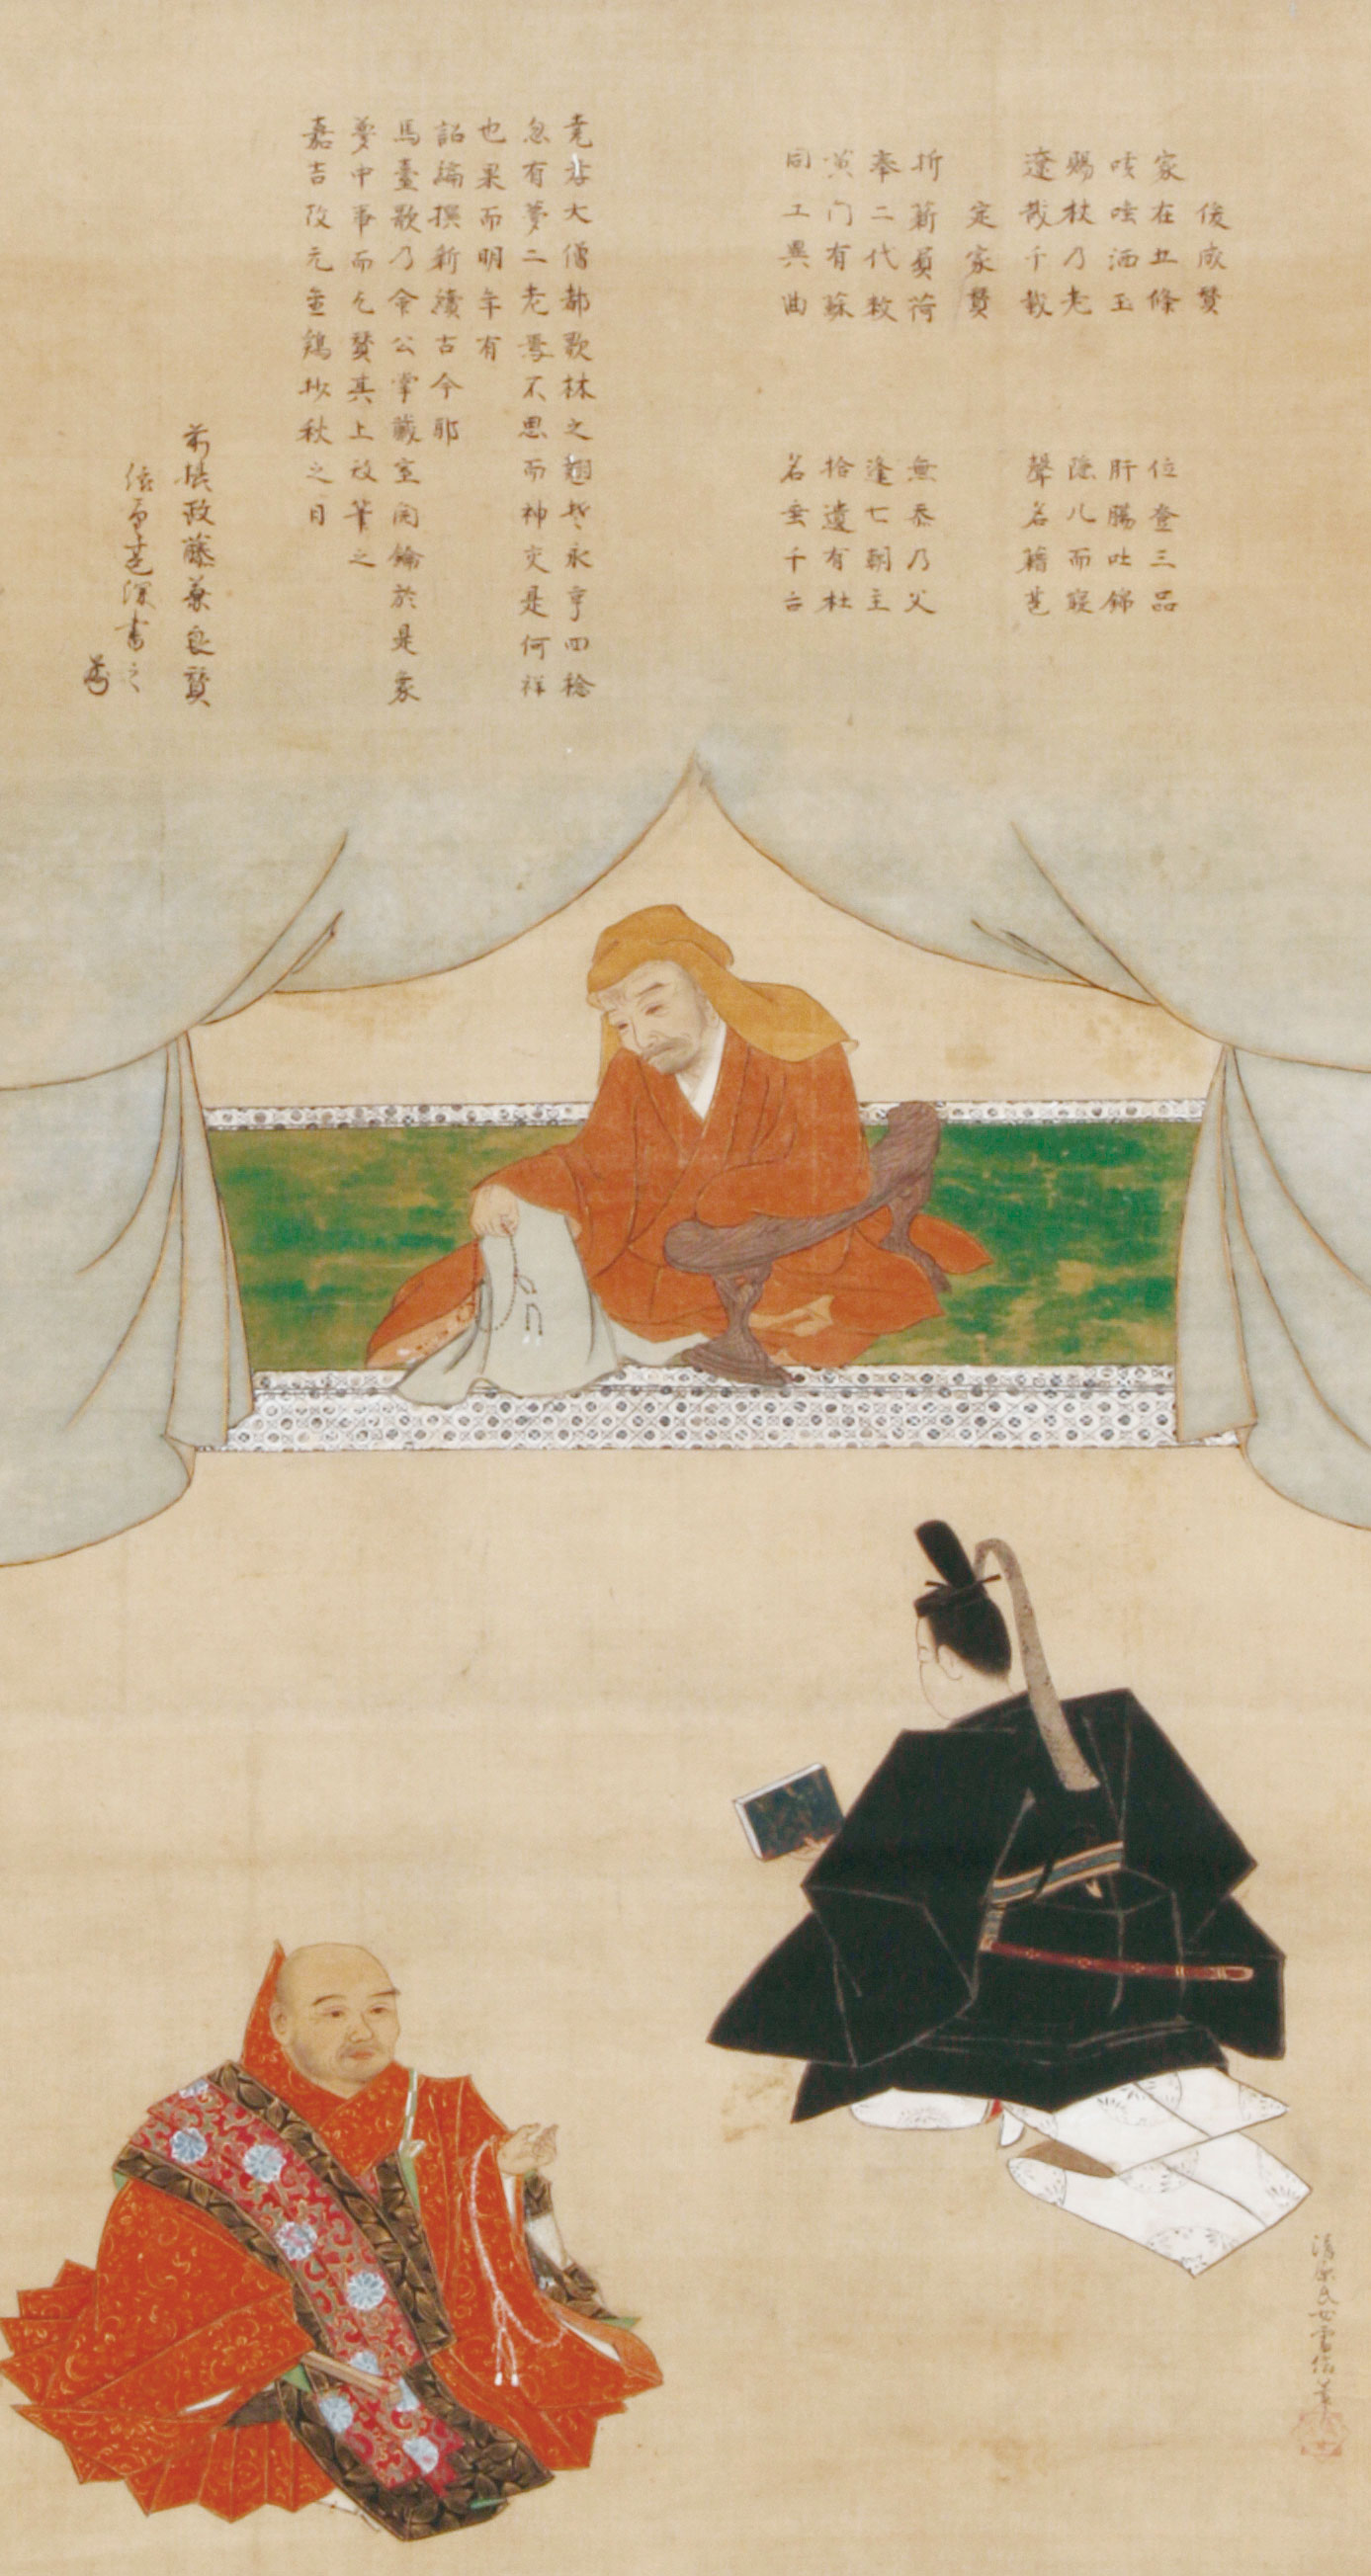 俊成賛
家在五條 位登三品
咳唾洒玉 肝腸吐錦
賜杖乃老 隠几而寝
遼哉千載 聲名籍甚
定家賛
折薪負荷 無忝乃父
奉二代敕 逢七朝主
黄门有蘇 拾遺有杜
同工異曲 名垂千古
堯孝大僧都歌林之翹楚永享四稔
忽有夢二老焉不思而神交是何祥
也果而明年有
詔編撰新續古今耶
馬臺歌乃令公掌蔵室関鑰於是象
夢中事而乞賛其上故筆之
嘉吉改元金鶏抄秋之日
前摂政藤兼良賛
書之
清原氏女雪信筆